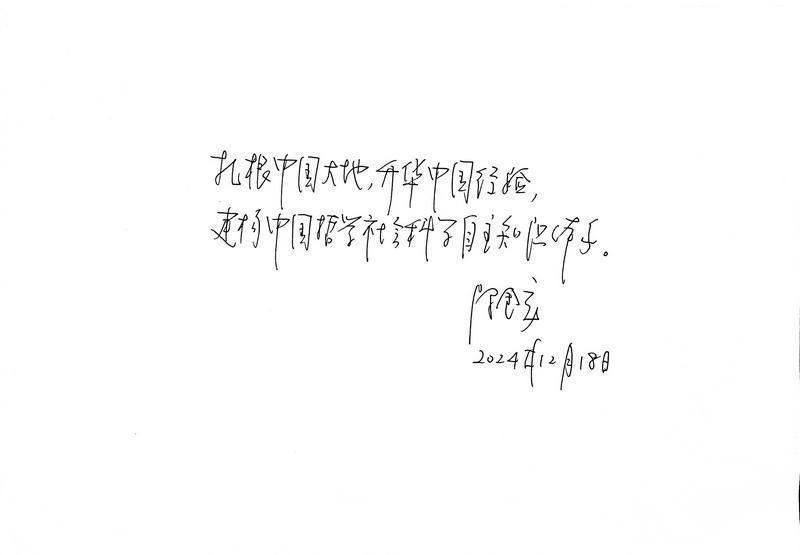 扎根中国大地,升华中国经验,
建构中国哲学社会科学自主知识体系。
2024年12月18日